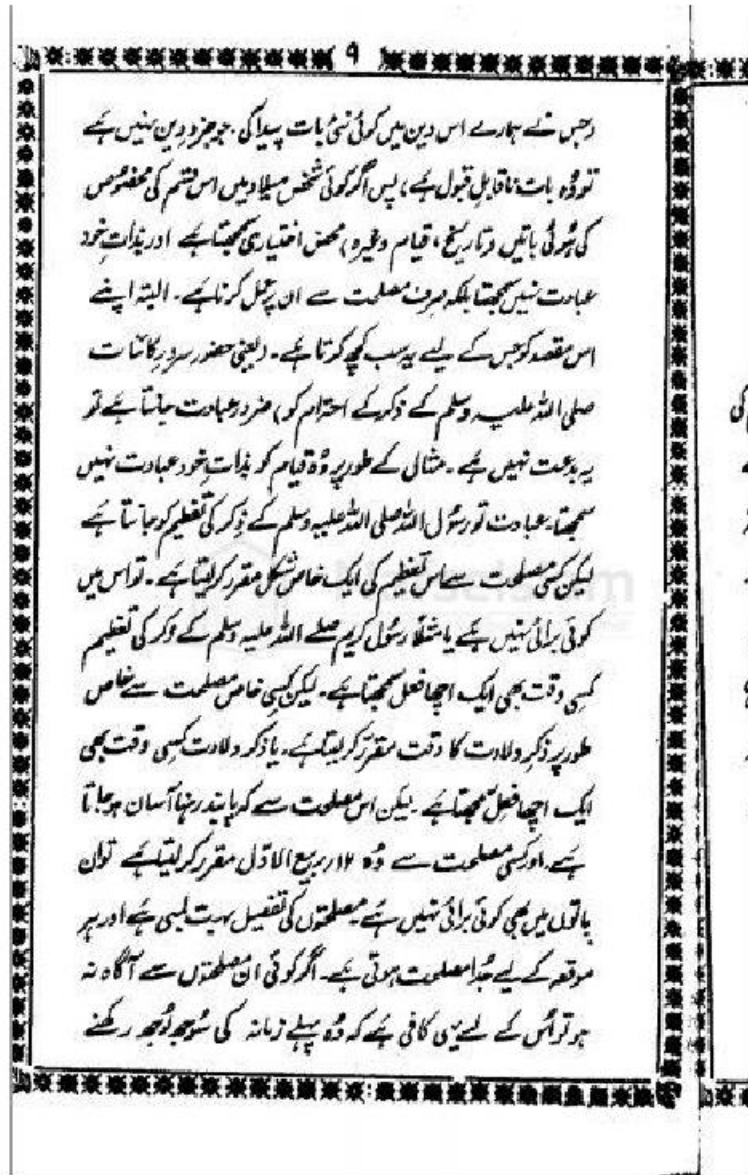 ۹
(جس نے ہمارے اس دین میں کوئی نئی بات پیدا کی . جو جزو دین نہیں ہے
تو وہ بات ناقابل قبول ہے) پس اگر کوئی شخص میلاد میں اس قسم کی مخصوص
کی ہوئی باتیں (تاریخ ، قیام وغیرہ) محض اختیاری سمجھتا ہے اور بذاتِ خود
عبادت نہیں سمجھتا بلکہ صرف مصلحت سے ان پر عمل کرتا ہے ۔ البتہ اپنے
اس مقصد کو جس کے لیے یہ سب کچھ کرتا ہے ۔ (یعنی حضور سرور کائنات
صلی اللہ علیہ وسلم کے ذکر کے احترام کو) ضرور عبادت جانتا ہے تو
یہ بدعت نہیں ہے ۔ مثال کے طور پر وہ قیام کو بذاتِ خود عبادت نہیں
سمجھتا ۔ عبادت تو رسُول اللہ صلی اللہ علیہ وسلم کے ذِکر کی تعظیم کو جانتا ہے
لیکن کسی مصلحت سے اس تعظیم کی ایک خاص شکل مقرر کر لیتا ہے ۔ تو اس میں
کوئی برائی نہیں ہے یا مثلاً رسُول کریم صلے اللہ علیہ وسلم کے ذکر کی تعظیم
کسی وقت بھی ایک اچھا فعل سمجھتا ہے ۔ لیکن کسی خاص مصلحت سے خاص
طور پر ذکرِ ولادت کا وقت مقرر کر لیتا ہے ۔ یا ذکر ولادت کسی وقت بھی
ایک اچھا فعل سمجھتا ہے ۔ لیکن اس مصلحت سے کہ پابند رہنا آسان ہو جاتا
ہے ۔ اور کسی مصلحت سے وہ ۱۲ ربیع الاوّل مقرر کر لیتا ہے توان
باتوں میں بھی کوئی برائی نہیں ہے مصلحتوں کی تفصیل بہت لمبی ہے اور ہر
موقعہ کے لیے جُدا مصلحت ہوتی ہے ۔ اگر کوئی ان مصلحتوں سے آگاہ نہ
ہو تو اُس کے لیے یہی کافی ہے کہ وہ پہلے زمانہ کی سُوجھ بُوجھ رکھنے